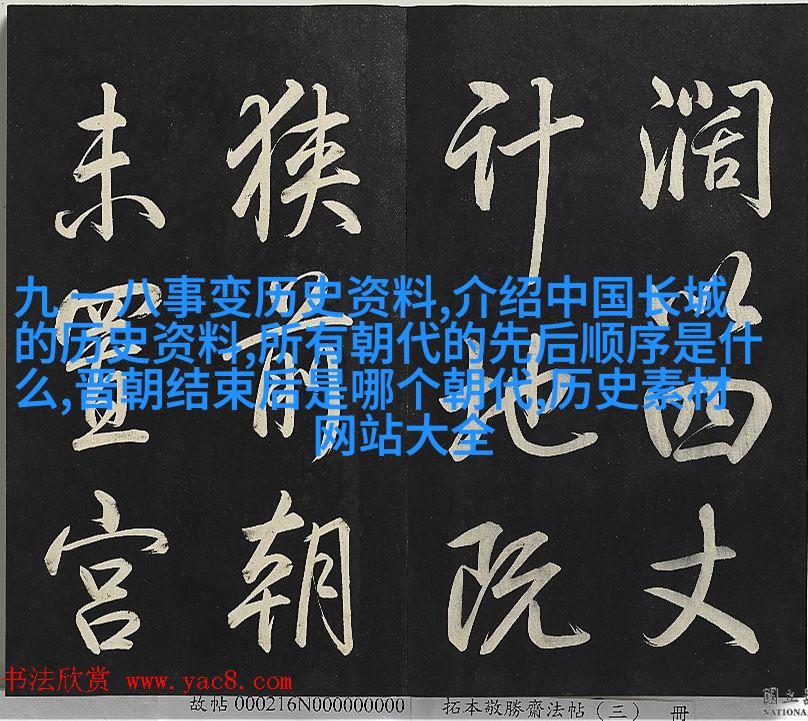 濶
丈
計地既
狹前朝
未置宮
九一八事变历史资料,介绍中国长城
的历史资料,所有朝代的先后顺序是什
么,晋朝结束后是哪个朝代,历史素材
网站大全
书法欣赏 www.yac8.com
故帖 000216N000000000 拓本敬勝齋法帖（三） 冊
國立
NATIONA